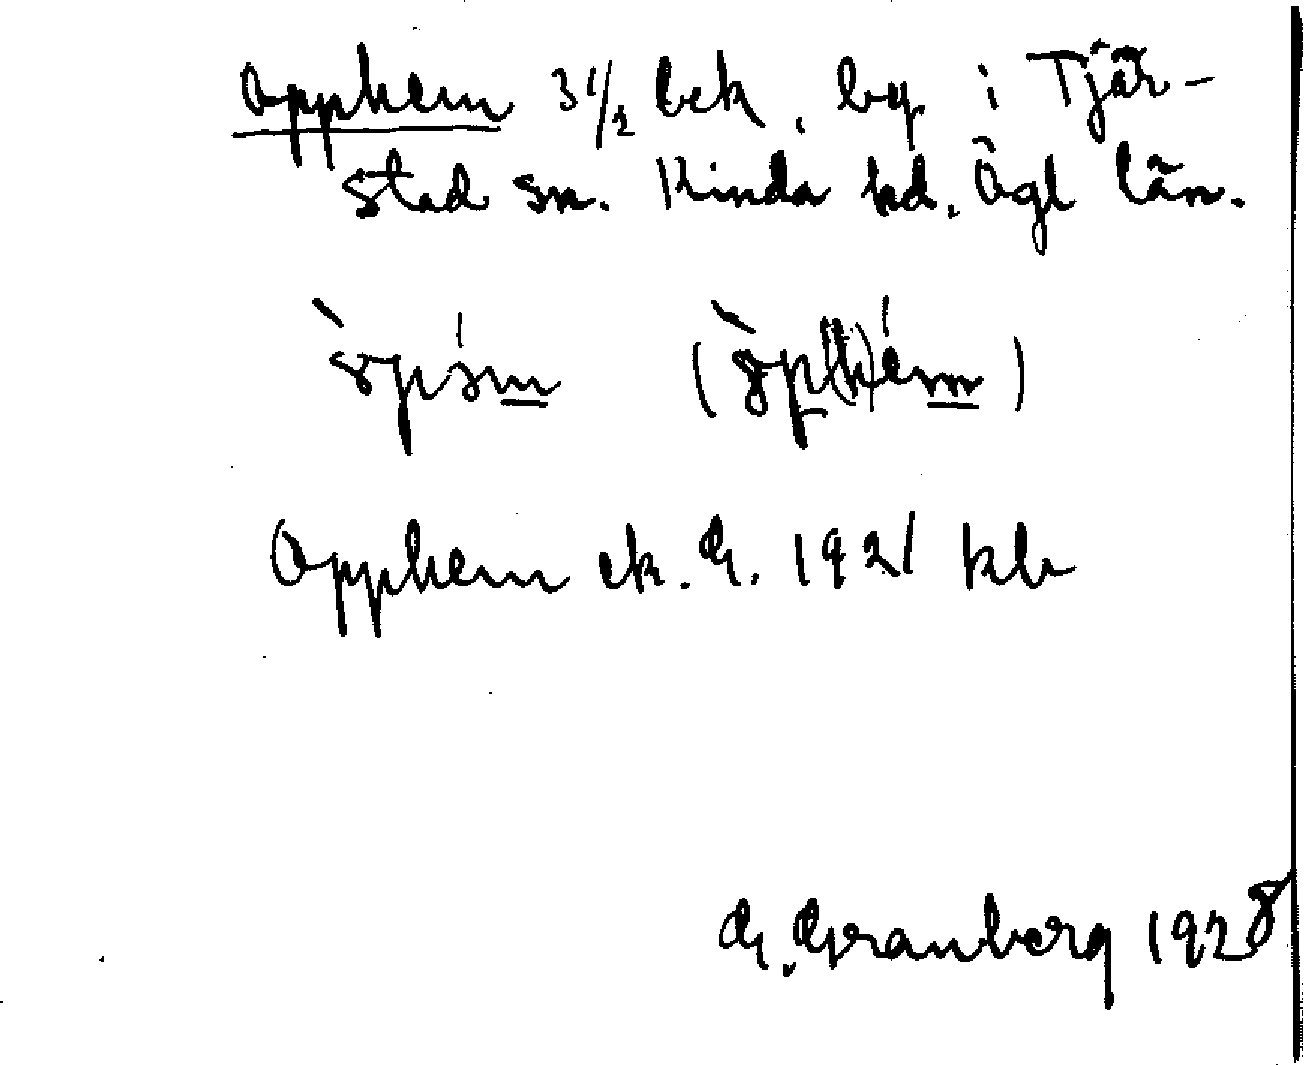 Opphem 3 1/2 bek. by i Tjär-
stad sn. Kinda hd. Ögl län.
Opphem ek. G. 1921 kb
G. Granberg 1928